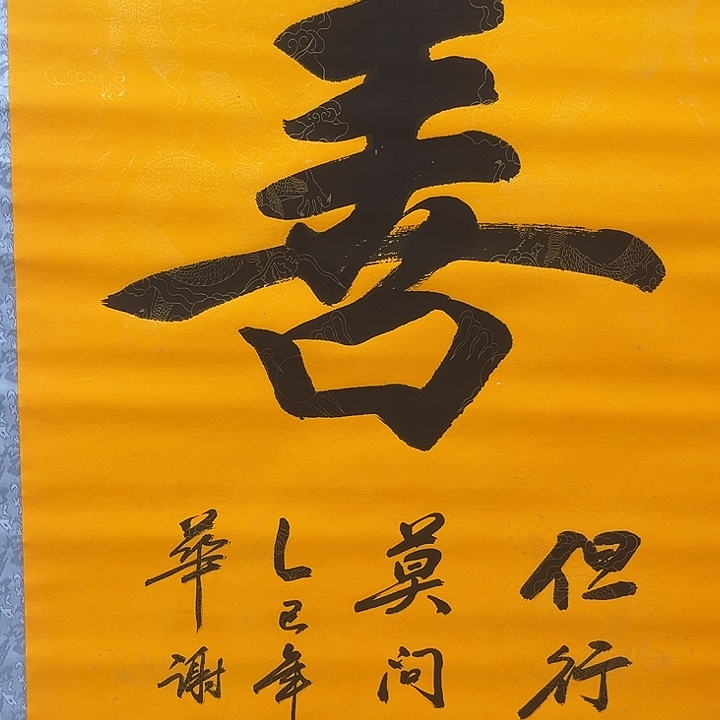 善
但行
莫问
乙巳年
華谢